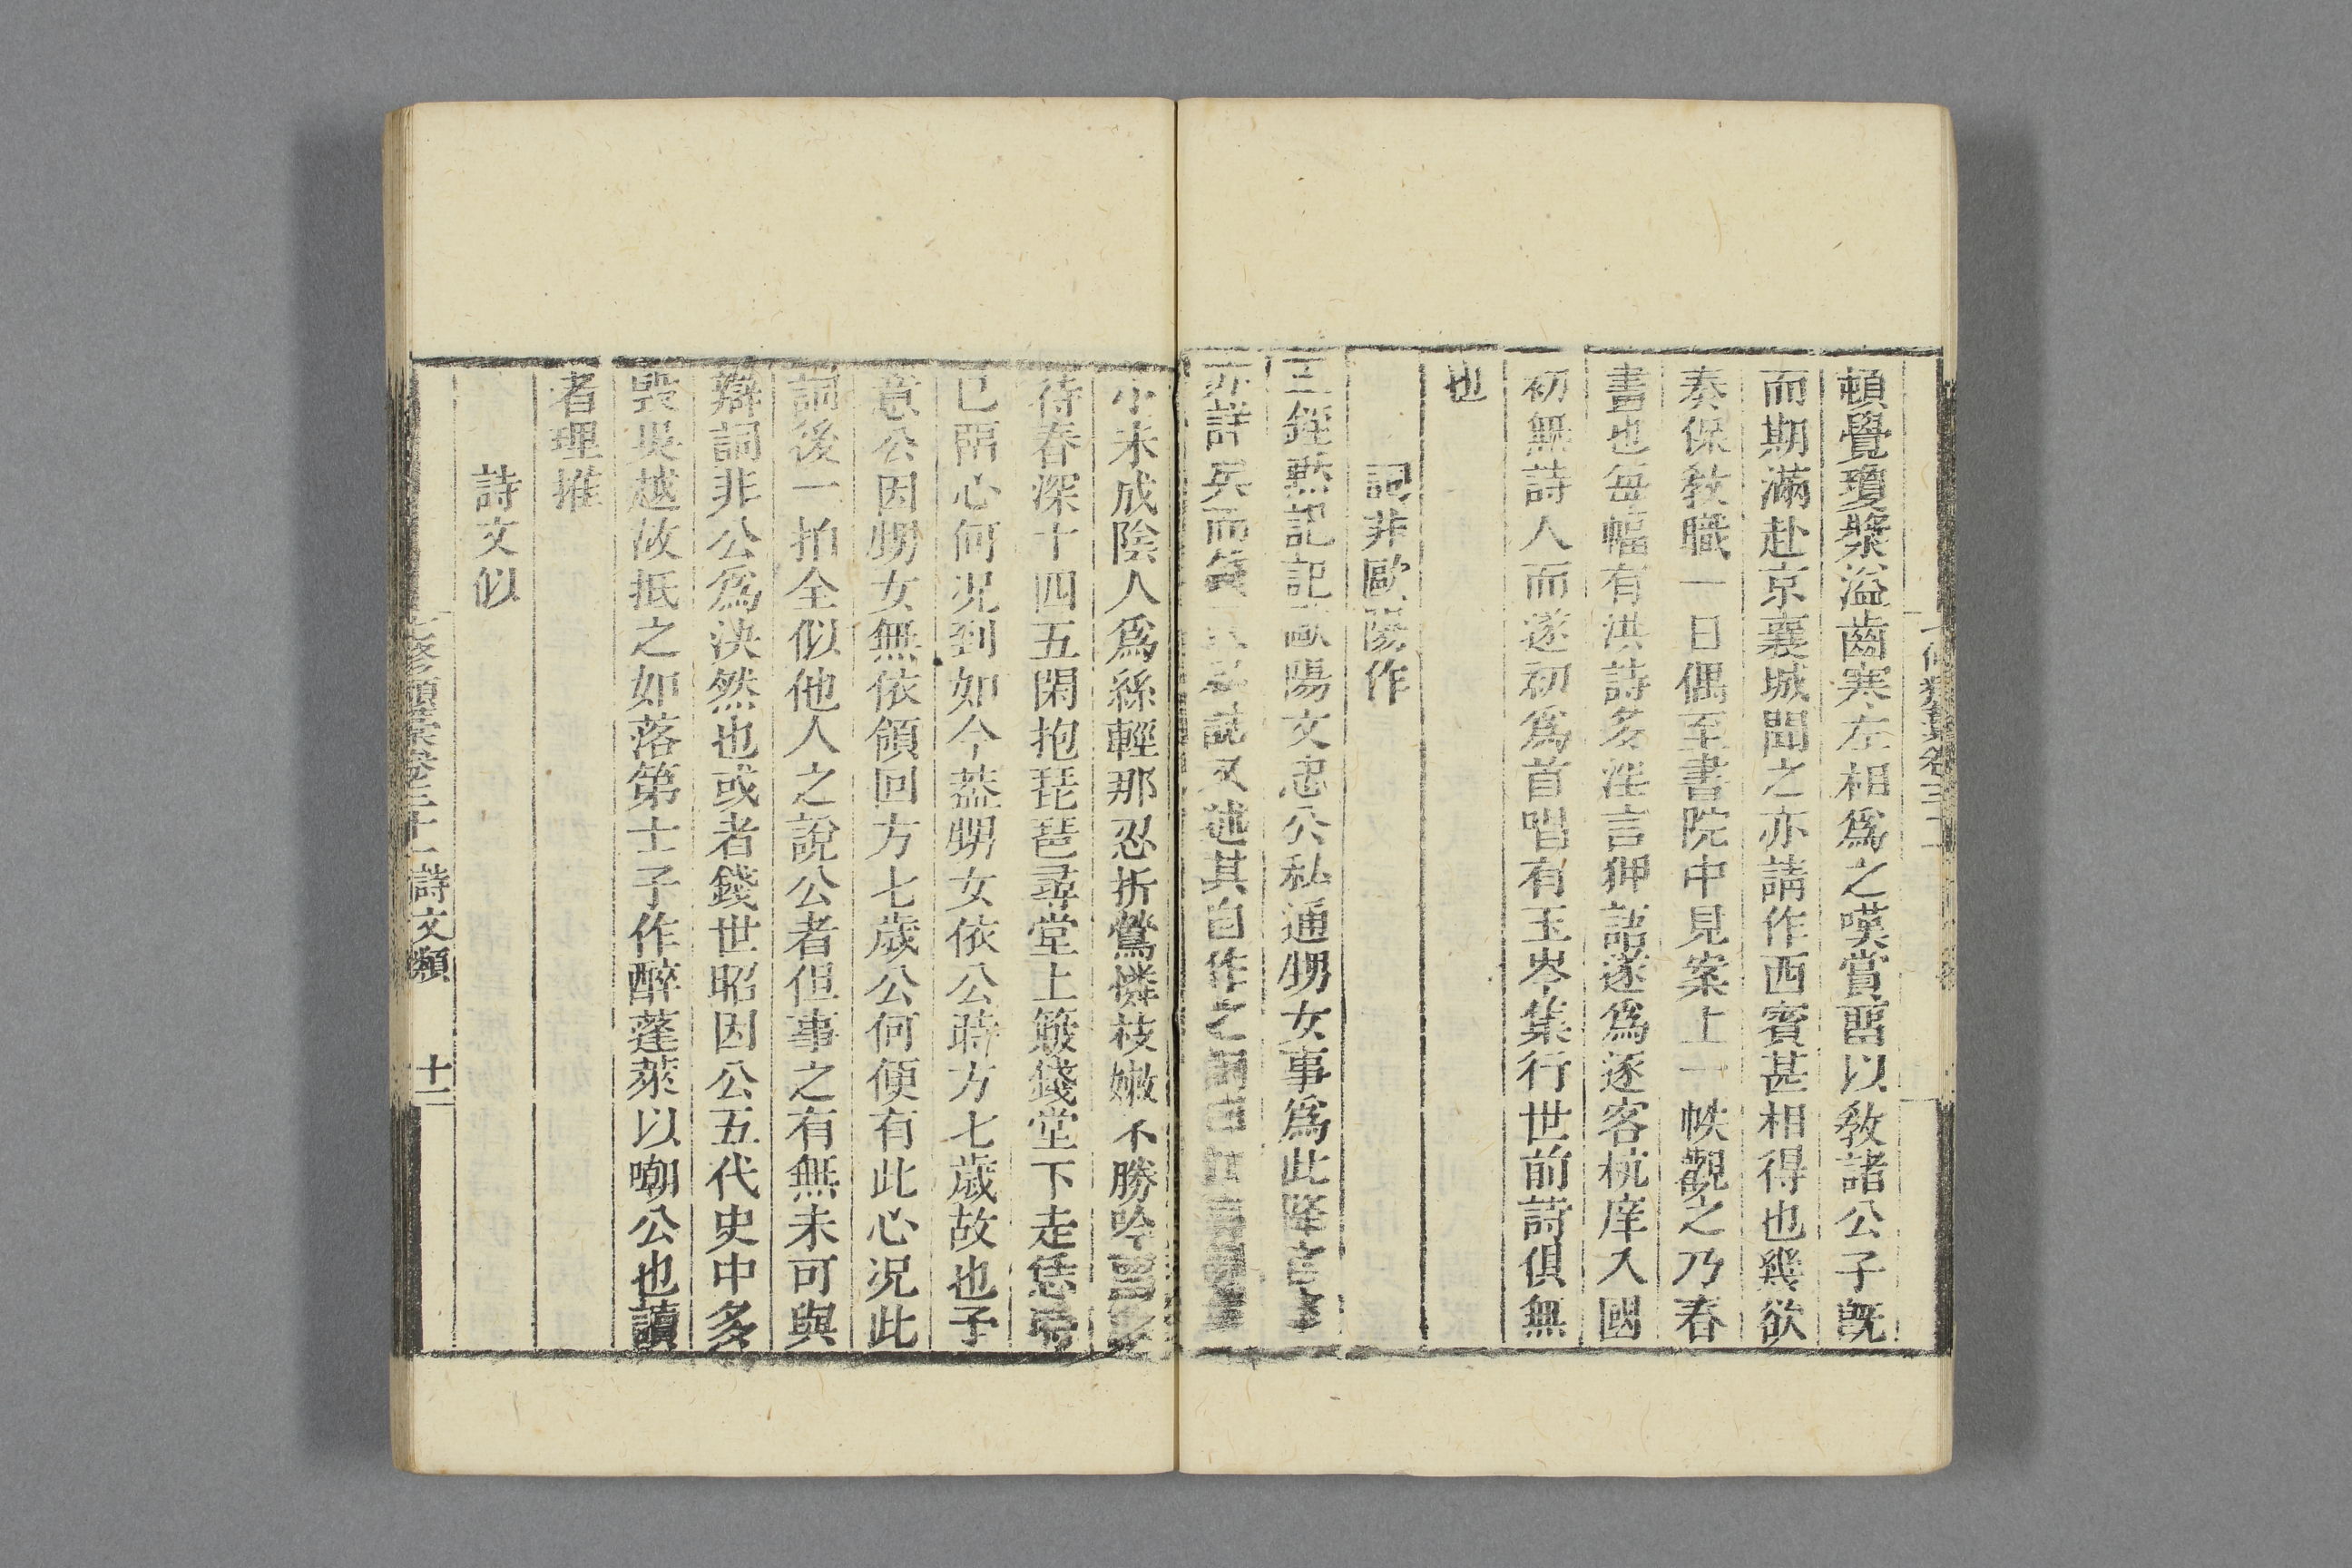 頓覺瓊漿溢齒寒左相爲之嘆賞畱以敎諸公子旣
而期滿赴京襄城聞之亦請作西賓甚相得也幾欲
奏保敎職一日偶至書院中見案上一帙觀之乃春
書也每幅有洪詩多淫言狎語遂爲逐客杭庠入國
初無詩人而遂初爲首唱有玉岑集行世前詩俱無
也
詞非歐陽作
王銍黙記記歐陽文忠公私通甥女事爲此降官
亦詳矣而錢 誌又述其自作之詞曰江南
小未成陰人爲絲輕那忍折鶯憐枝嫩不勝吟畱
待春深十四五閑抱琵琶尋堂上簸錢堂下走恁
已畱心何况到如今葢甥女依公時方七歲故也予
意公因甥女無依領回方七歲公何便有此心况此
詞後一拍全似他人之說公者但事之有無未可與
辯詞非公爲決然也或者錢世昭因公五代史中多
毁吳越故抵之如落第士子作醉蓬萊以嘲公也讀
者理推
詩文似
七修類藁卷三十一 詩文類 十二